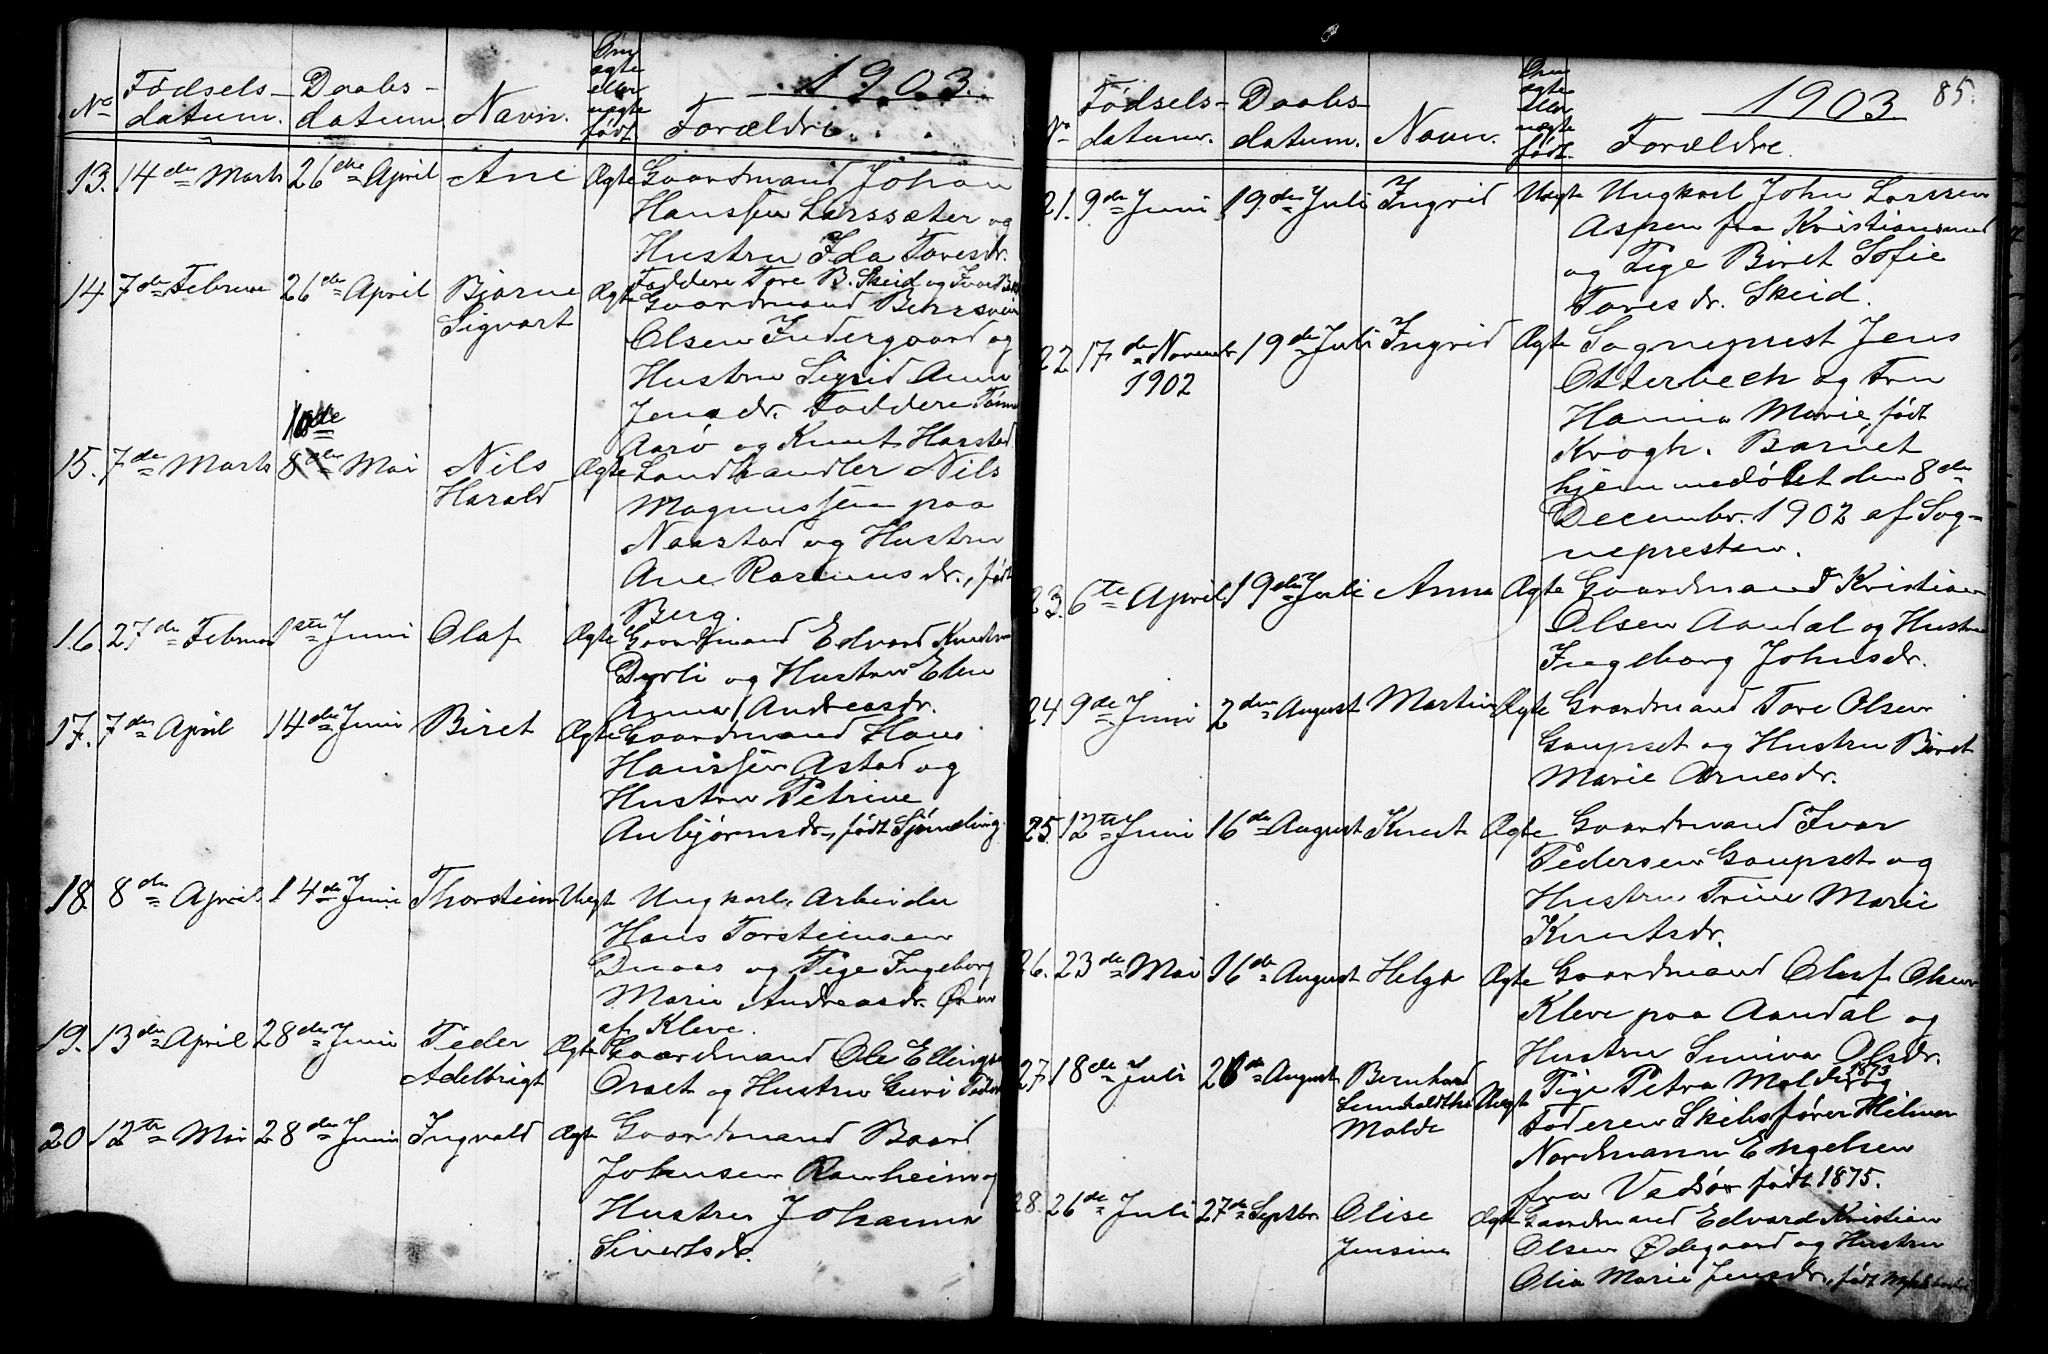 1903.
No Fødsels- Daabs- Navn. Om ægte eller uægte født. Forældre.
datum. datum.
13. 14de Marts 26de April Ane Ægte Gaardmand Johan
Hanssen Larssæter og
Hustru Ida Toresdr.
Faddere Tore B. Skeid og Ivar
14 7de Februar 26de April Bjarne Ægte Gaardmand
Sigvart
Olsen Indergaard og
Hustru Sigrid Anna
Jensdr. Faddere
Aarø og Knut Harstad
10de
15. 7de Marts 8de Mai Nils Ægte Landhandler Nils
Harald Magnussen paa
Naastad og Hustru
Ane Rasmusdr., født
Berg.
16. 27de Februar 1ste Juni Olaf Ægte Gaardmand Edvard Knutsen
Dyrli og Hustru Elen
Anna Andreasdr.
17. 7de April 14de Juni Biret Ægte Gaardmand Hans
Hanssen Astad og
Hustru Petrine
Anbjørnsdr., født
18. 8de April 14de Juni Thorstein Uægt Ungkarl, Arbeider
Hans Torsteinsen
og Pige Ingeborg
Marie Andreasdr.
af Kleve.
19. 13de April 28de Juni Peder Ægte Gaardmand Ole Ellingsen
Adelbrigt Orset og Hustru Guri
20 12te Mai 28de Juni Ingvald Ægte Gaardmand Baard
Johnsen Ranheim og
Hustru Johanna
Sivertsdr.
85.
1903.
No Fødsels- Daabs- Navn. Om ægte eller uægte født. Forældre.
datum. datum.
21. 9de Juni 19de Juli Ingrid Uægte Ungkarl John Larssen
Aspen fra Kristiansund
og Pige Biret Sofie
Toresdr. Skeid.
22 17de Novembr 19de Juli Ingrid Ægte Sogneprest Jens
1902 Otterbech og Fru
Hanna Marie, født
Krogh. Barnet
hjemmedøbt den 8de
Decembr. 1902 af Sog-
nepresten.
23. 6te April 19de Juli Anna Ægte Gaardmand Kristian
Olsen Aandal og Hustru
Ingeborg Johnsdr.
24 9de Juni 2den August Martin Ægte Gaardmand Tore Olsen
Gaupset og Hustru Biret
Marie Arnesdr.
25. 12te Juni 16de August Knut Ægte Gaardmand Ivar
Pedersen Gaupset og
Hustru Trine Marie
Knutsdr.
26. 23de Mai 16de August Helga Ægte Gaardmand Oluf Olsen
Kleve paa Aandal og
Hustru Suniva Olsdr.
27. 18de Juli August Bernhard Uægt Pige Petra Molde 1873 og
Molde Faderen Skibsfører Hilmar
Nordmann Engelsen
fra Vadsø født 1875.
28. 26de Juli 27de Septbr. Olise Ægte Gaardmand Edvard Kristian
Jensine Olsen Ødegaard og Hustru
Olia Marie Jensdr., født